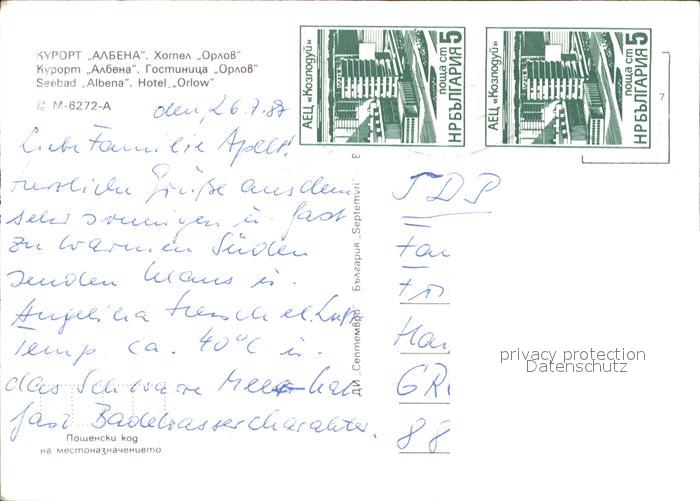 КУРОРТ „АЛБЕНА". Хотел „Орлов"
Курорт „Албена". Гостиница „Орлов"
Seebad „Albena". Hotel „Orlow"
© М-6272-А
den, 26.7.87
Liebe Familie Apelt!
herzliche Grüße aus dem
sehr sonnigen u. fast
zu warmen Süden
senden Klaus u.
Angelika Henschel. Luft
Temp. ca. 40°C u.
das Schwarze Meer hat
fast Badewassercharakter.
Пощенски код
на местоназначението
ДИ „Септември" България „Septemvri" B
АЕЦ «Козлодуй»
поща ст 5
НРБЪЛГАРИЯ
АЕЦ «Козлодуй»
поща ст 5
НРБЪЛГАРИЯ
7
Fa
Ha
GR
88
privacy protection
Datenschutz